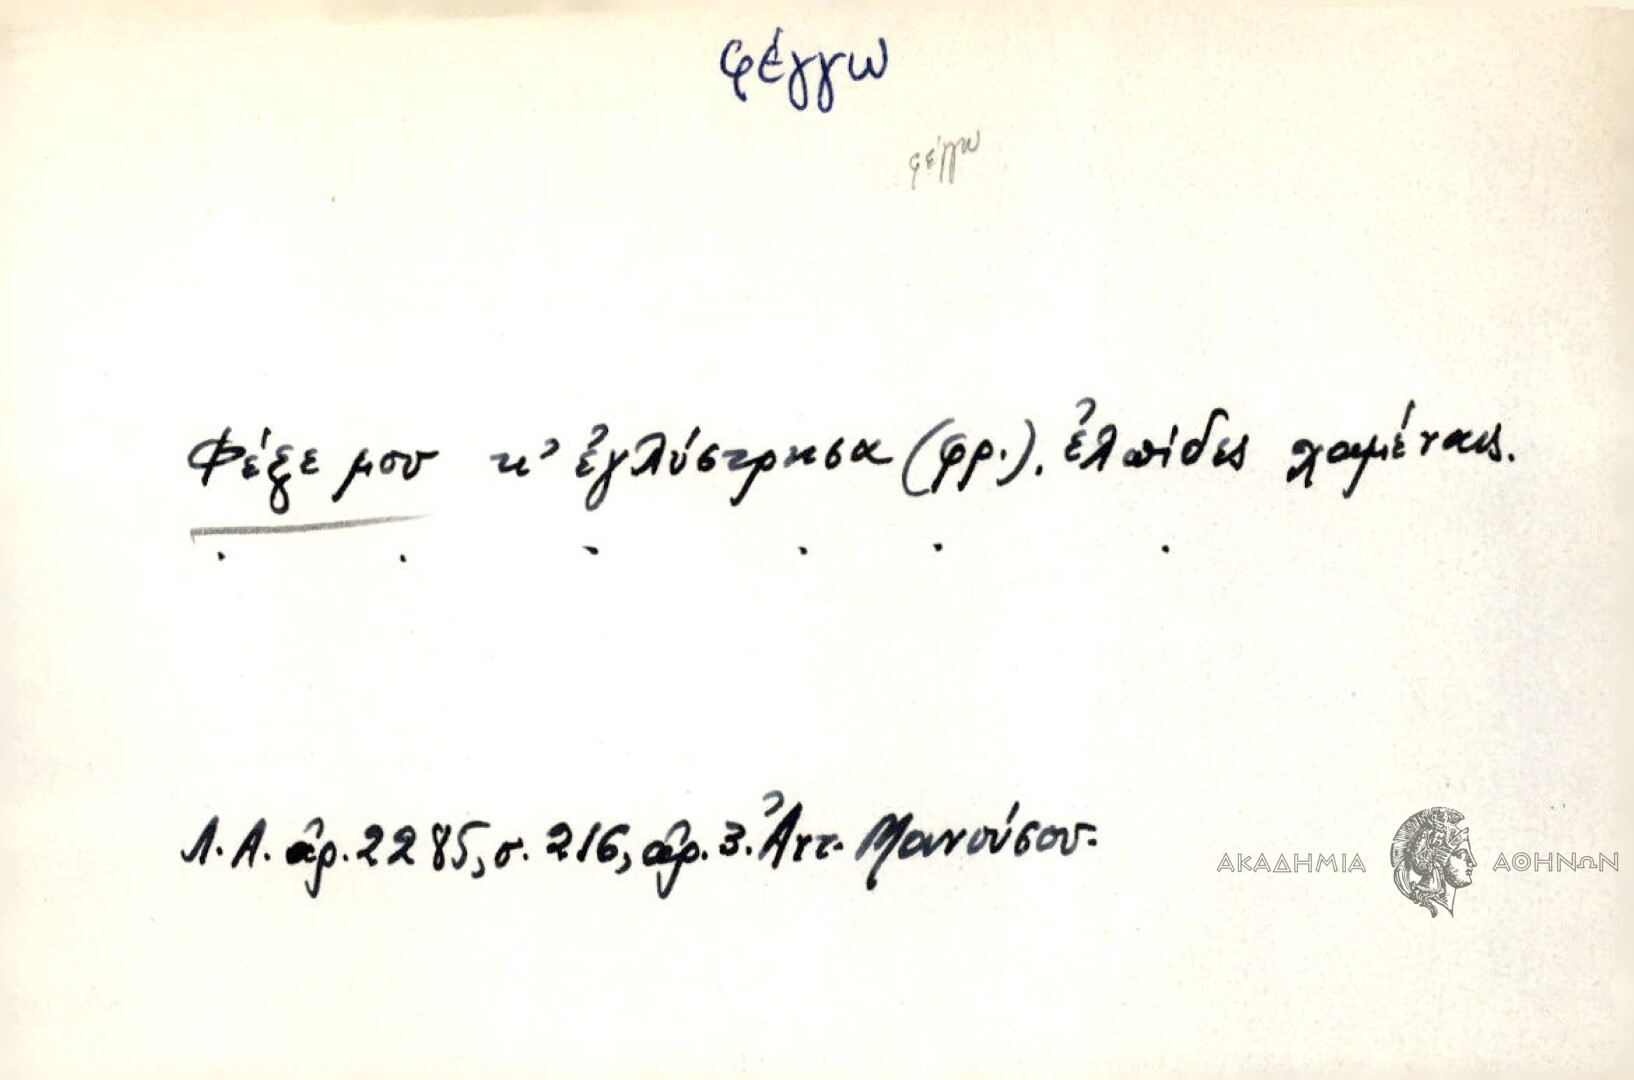 φέγγω
φέγγω
Φέξε μου κ' ἐγλύστρησα (φρ.). ἐλπίδες χαμέναις.
Λ.Α. ἀρ. 2285, σ. 216, ἀρ. 3. Ἀντ. Μανούσου.
ΑΚΑΔΗΜΙΑ ΑΘΗΝΩΝ